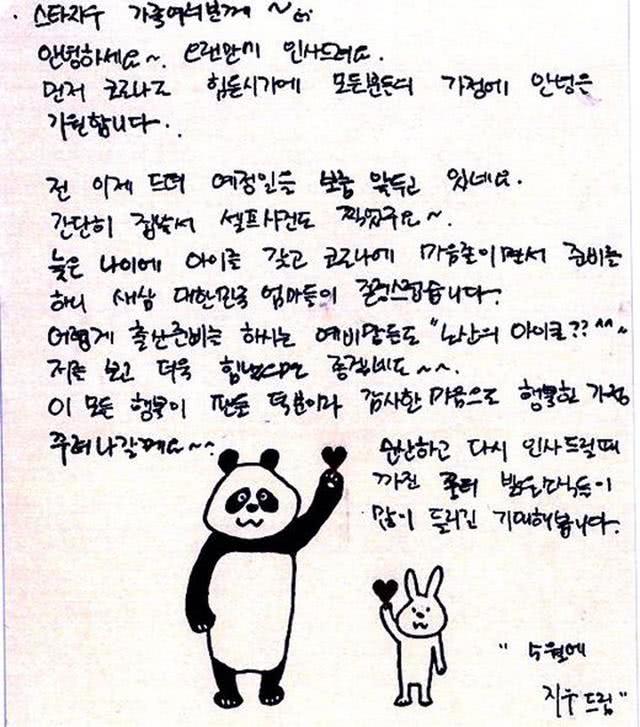 스타지우 가족여러분께 ~
안녕하세요~. 오랜만에 인사드려요.
먼저 코로나로 힘든시기에 모든분들의 가정에 안녕을
기원합니다..
전 이제 드뎌 예정일을 보름 앞두고 있네요.
간단히 집에서 셀프사진도 찍었구요~.
늦은 나이에 아이를 갖고 코로나에 마음졸이면서 준비를
하니 새삼 대한민국 엄마들이 존경스럽습니다.
어렵게 출산준비를 하시는 예비맘들도 "노산의 아이콘?? ^^"
저를 보고 더욱 힘냈으면 좋겠네요~~.
이 모든 행복이 팬들 덕분이라 감사한 마음으로 행복한 가정
꾸려나갈께요~~
순산하고 다시 인사드릴때
까진 밝은소식들이
많이 들리길 기대해봅니다.
" 5월에
지우 드림 "